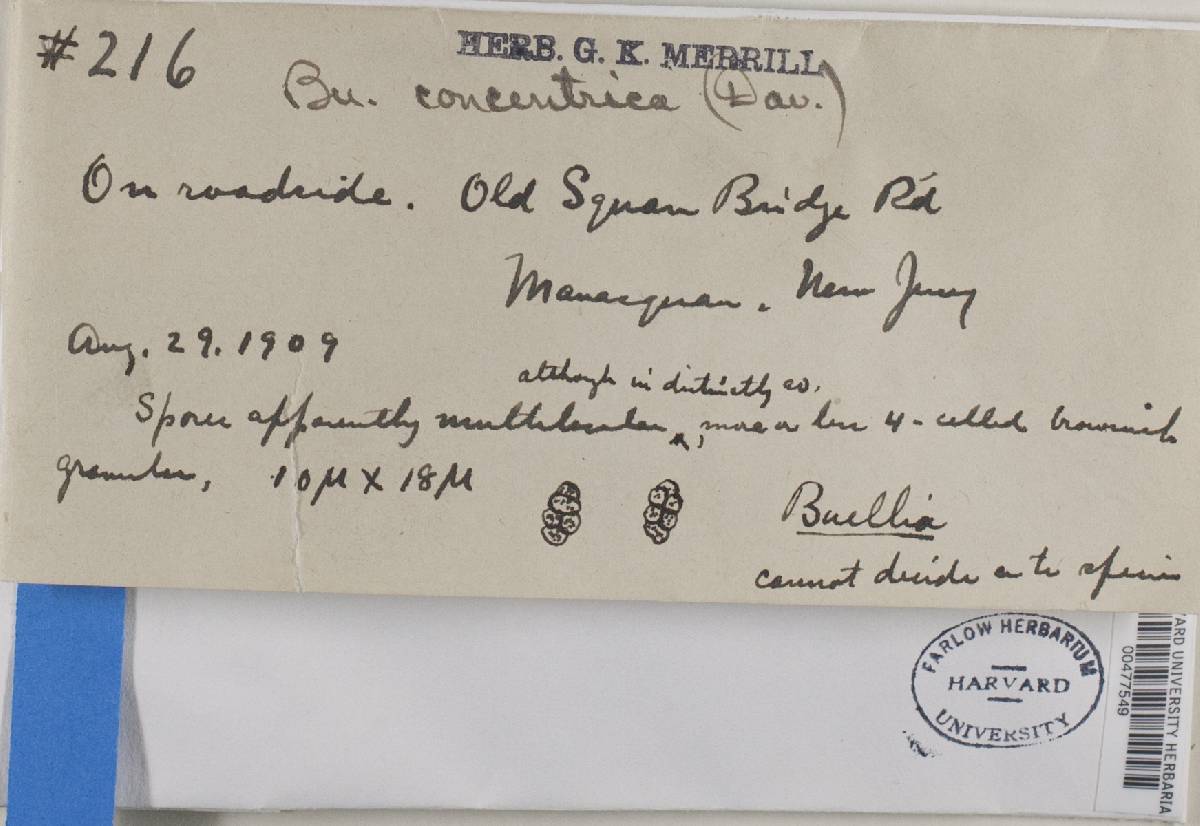 #216
HERB. G. K. MERRILL
Bu. concentrica (Dav.)
On roadside. Old Squan Bridge Rd
Manasquan, New Jersey
Aug. 29. 1909
although indistinctly so.
Spores apparently multilocular, more or less 4-celled brownish
granular, 10µ X 18µ
Buellia
cannot decide as to species
FARLOW HERBARIUM
HARVARD
UNIVERSITY
ARD UNIVERSITY HERBARIA
00477549